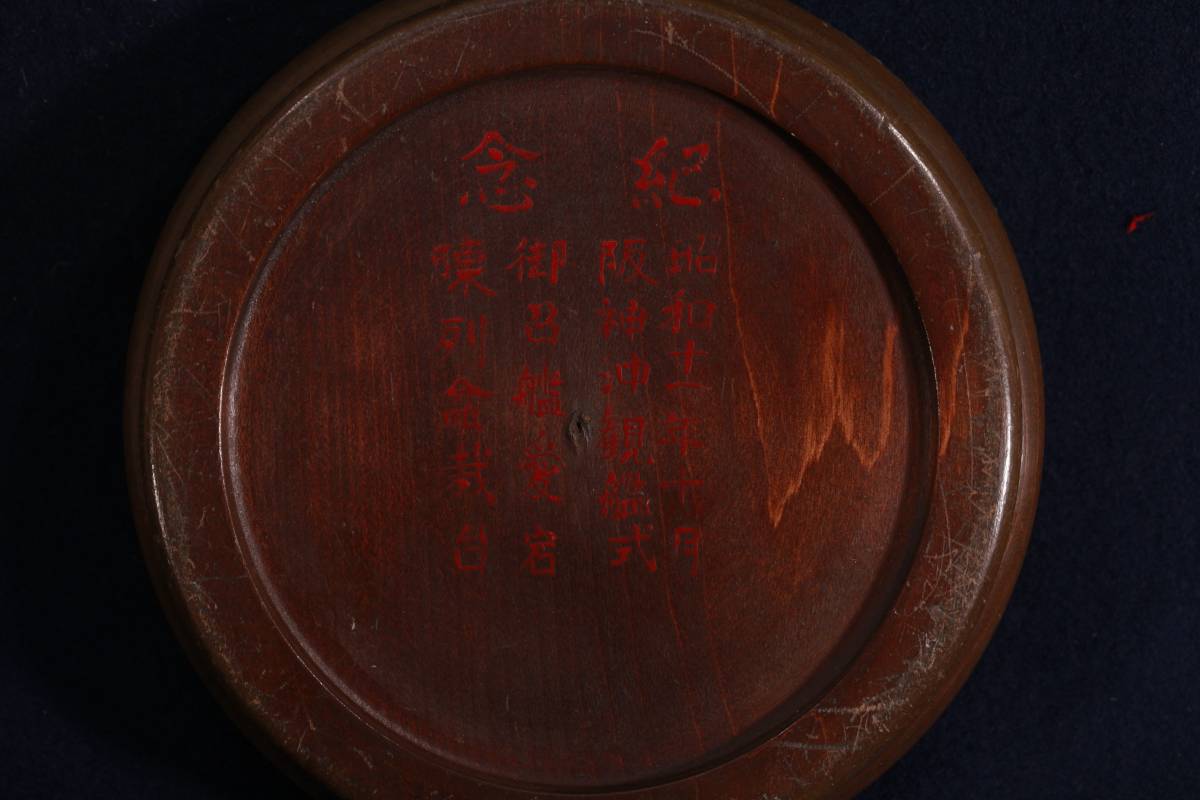 紀念
昭和十一年十月
阪神沖観艦式
御召艦愛宕
陳列盆栽台